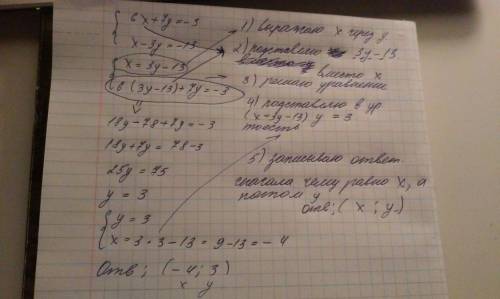 6x+7y=-3
x-3y=-13
x=3y-13
6(3y-13)+7y=-3
18y-78+7y=-3
18y+7y=78-3
25y=75
y=3
y=3
x=3·3-13=9-13=-4
Отв; (-4; 3)
x y
1) выражаю x через y
2) подставляю 3y-13
вместо x
3) решаю уравнение
4) подставляю в ур
(x=3y-13) y=3
5) записываю ответ
сначала чему равно x, а
потом y
Отв; (x; y)